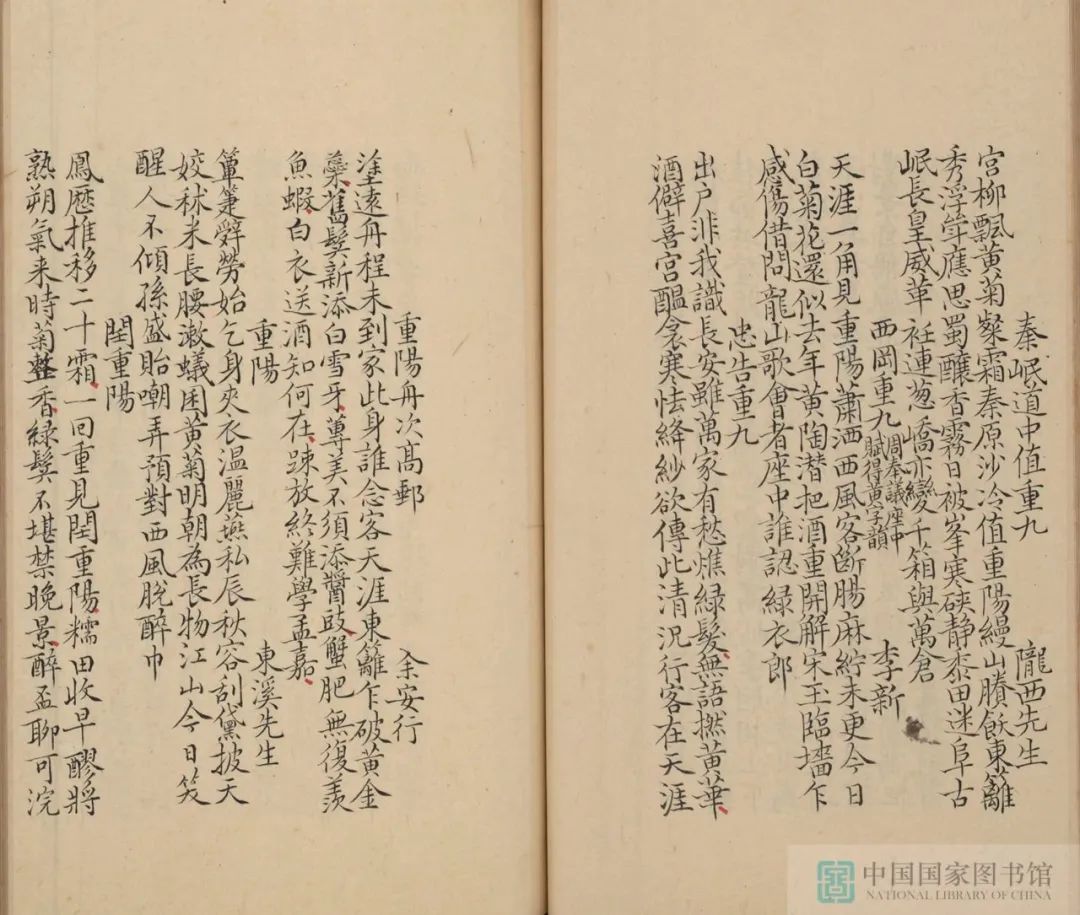 秦岷道中值重九　隴西先生
宮柳飄黃菊粲霜秦原沙冷值重陽縵山賸飫東籬
秀浮甞應思蜀釀香霧日被峯寒磧静黍田迷阜古
岷長皇威革衽連葱嶠亦變千箱與萬倉
西岡重九周奉議座中賦得黃字韻　李新
天涯一角見重陽蕭洒西風客斷腸麻紵未更今日
白菊花還似去年黃陶潜把酒重開解宋玉臨墻乍
感傷借問龍山歌會者座中誰認綠衣郎
忠告重九
出户非我識長安雖萬家有愁燋緑髮無語撚黃華
酒僻喜宮醖衾寒怯絳紗欲傳此清況行客在天涯
重陽舟次高郵　余安行
塗遠舟程未到家此身誰念客天涯東籬乍破黃金
蘂舊鬓新添白雪牙蓴美不須添醬豉蟹肥無復羡
魚蝦白衣送酒知何在踈放終難學孟嘉
重陽　東溪先生
簞箑辭勞始乞身夾衣温麗燕私辰秋容刮黛披天
姣秫米長腰漱蟻囷黃菊明朝為長物江山今日笑
醒人不傾孫盛貽嘲弄預對西風脫醉巾
閏重陽
鳳歷推移二十霜一回重見閏重陽糯田收早醪將
熟朔氣来時菊整香緑鬓不堪禁晚景醉盃聊可浣
中国国家图书馆
NATIONAL LIBRARY OF CHINA